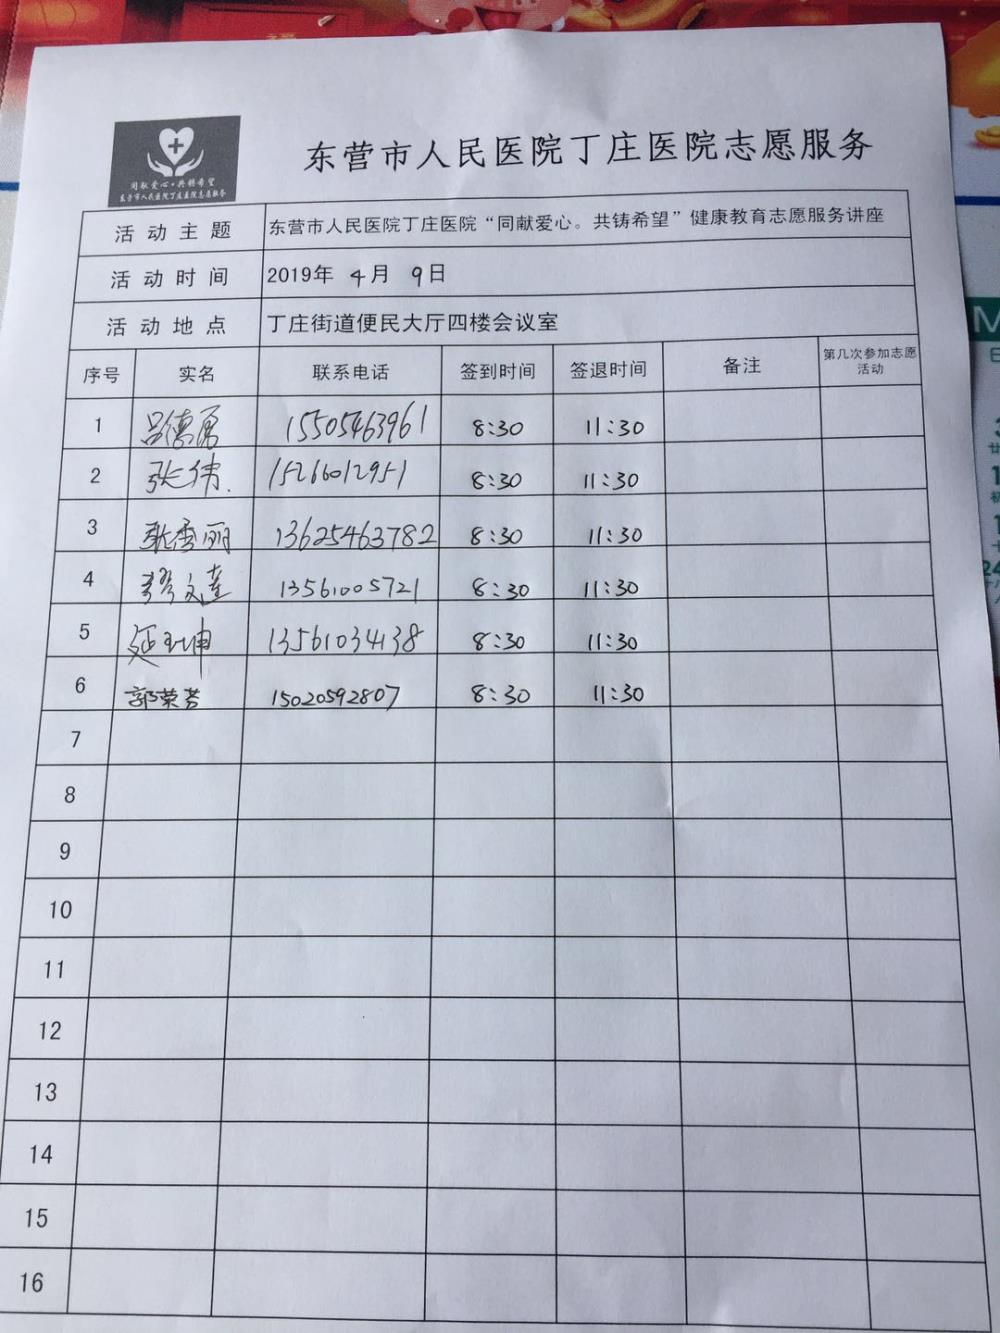 同献爱心·共铸希望
东营市人民医院丁庄医院志愿服务
东营市人民医院丁庄医院志愿服务
活动主题 东营市人民医院丁庄医院“同献爱心。共铸希望”健康教育志愿服务讲座
活动时间 2019年 4月 9日
活动地点 丁庄街道便民大厅四楼会议室
序号 实名 联系电话 签到时间 签退时间 备注 第几次参加志愿
活动
1 吕德勇 15505463961 8:30 11:30
2 张伟 15266012951 8:30 11:30
3 秀丽 13625463782 8:30 11:30
4 文莲 13561005721 8:30 11:30
5 延玉坤 13561034138 8:30 11:30
6 郭荣芳 15020592807 8:30 11:30
7
8
9
10
11
12
13
14
15
16